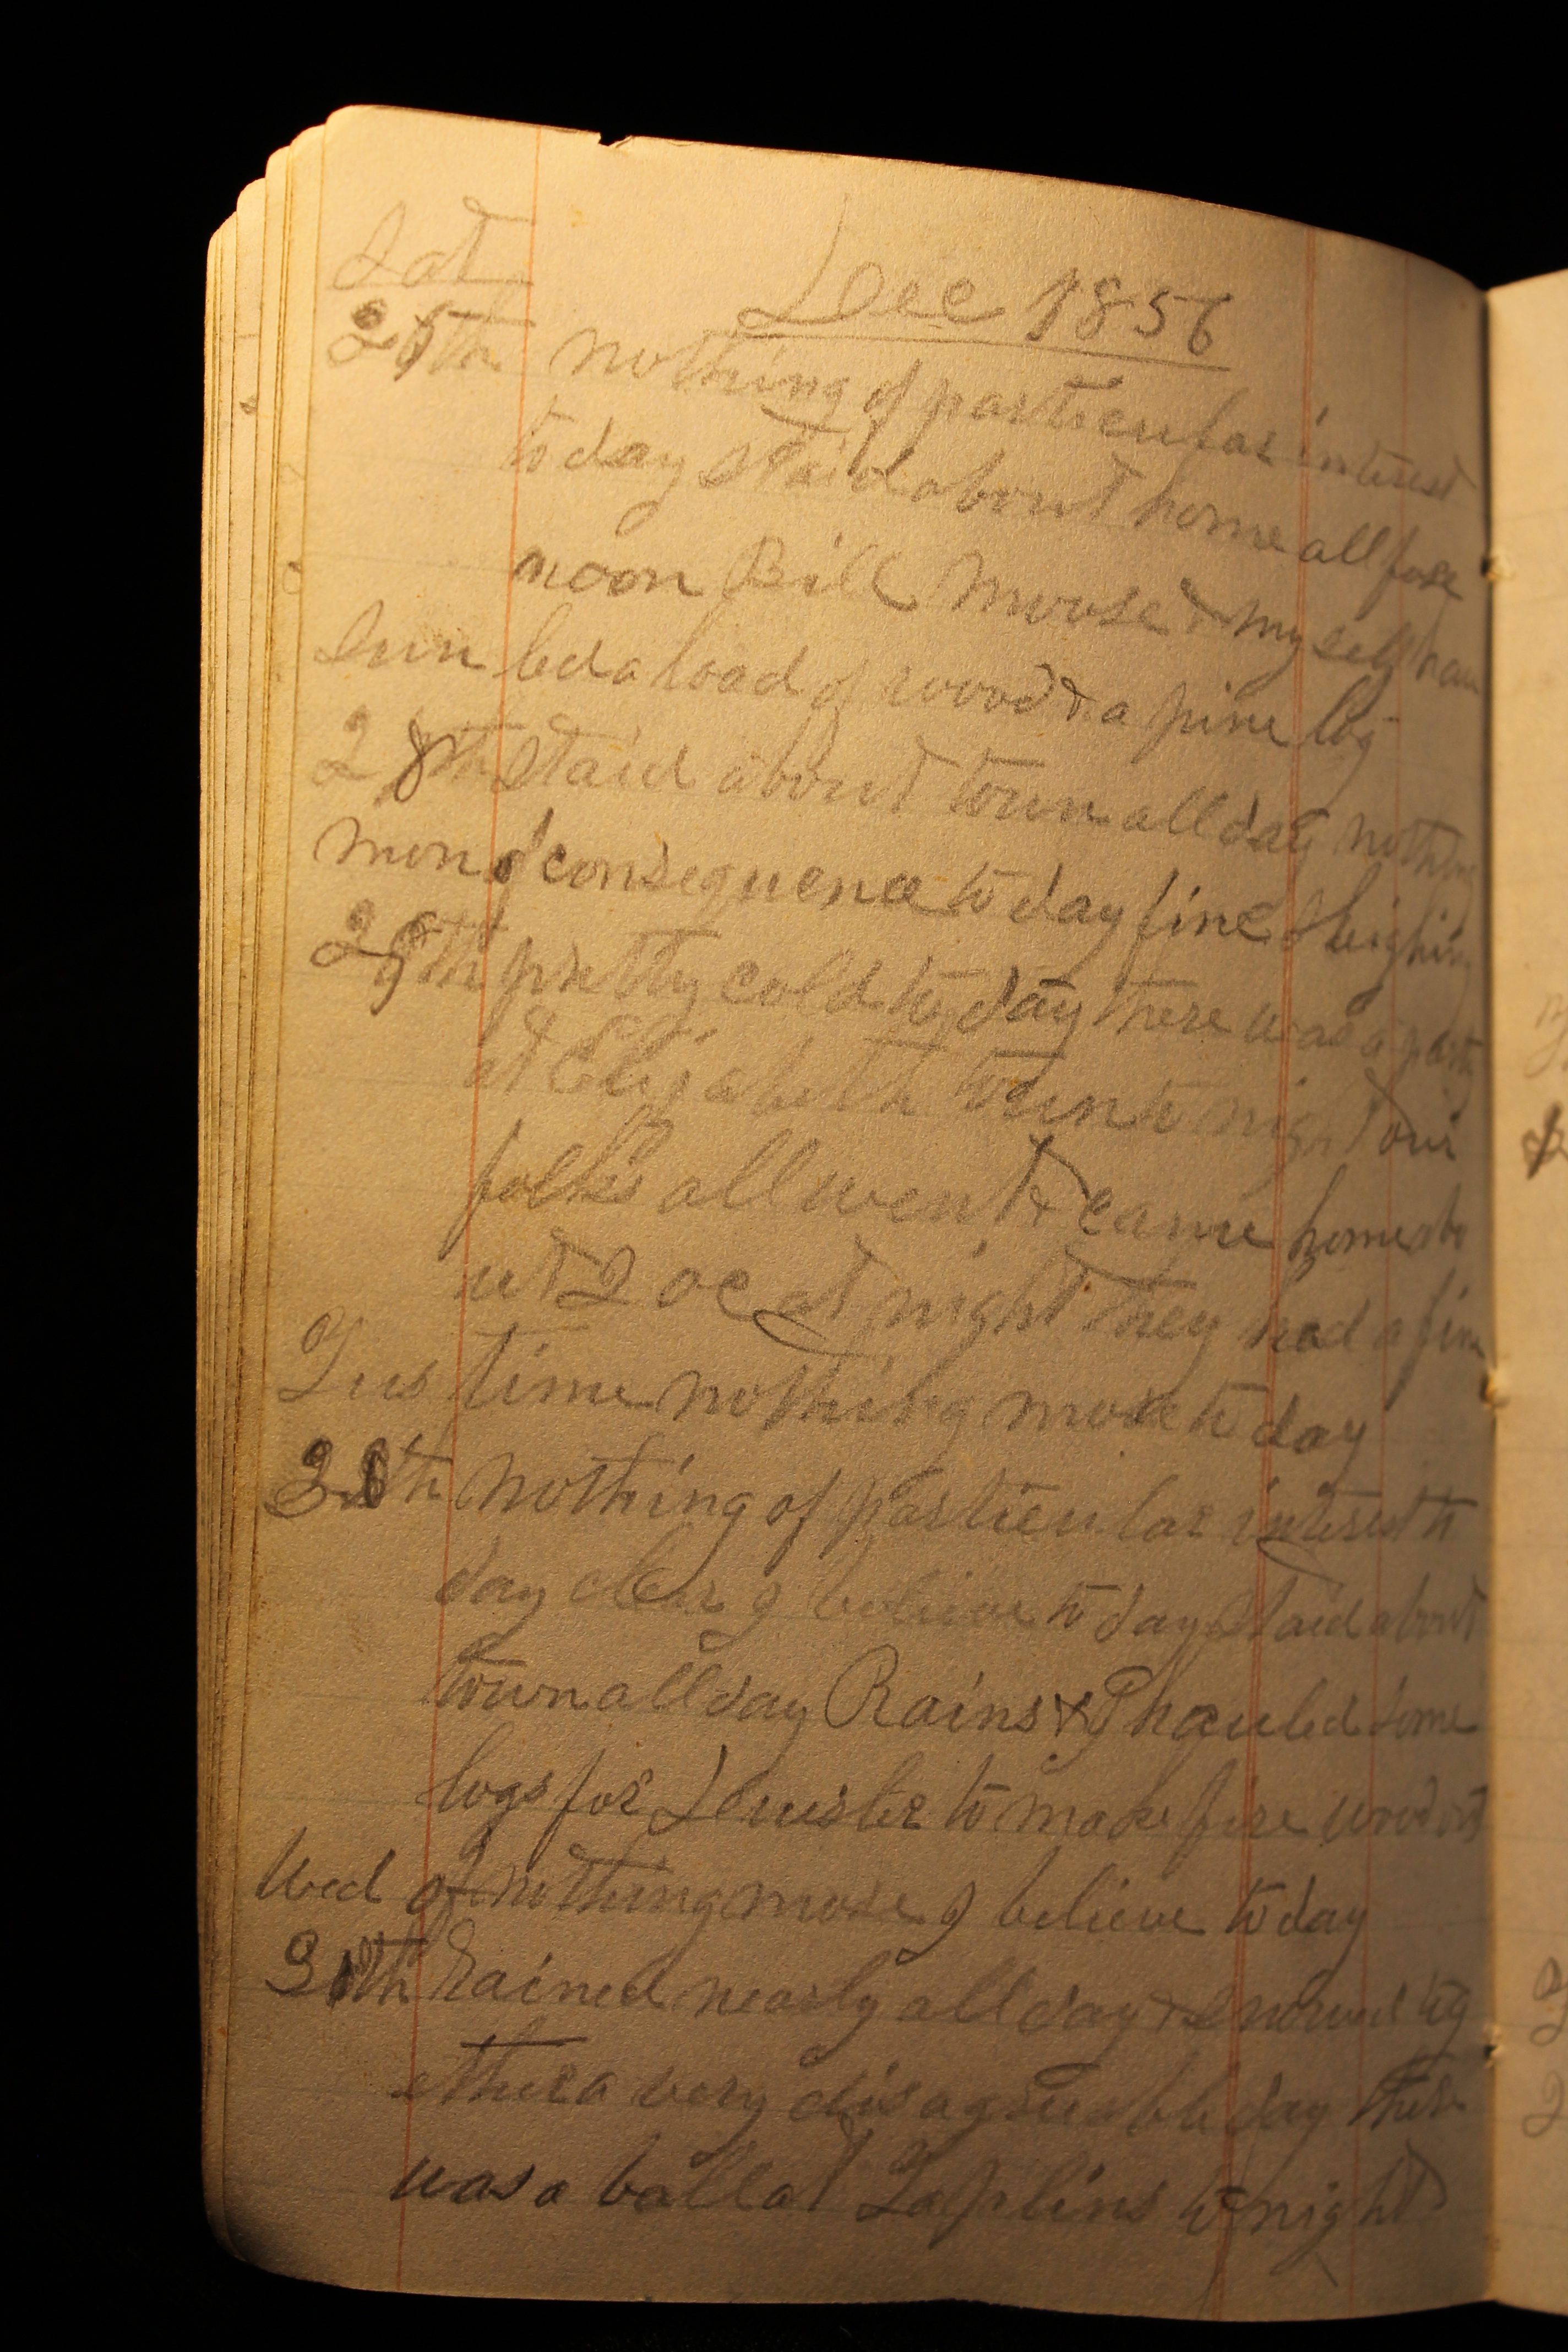 Sat
Dec 1856
26th nothing of particular interest
to day staid about home all fore
noon Bill Moose & my self hau
Sun led a load of wood & a pine log
28th staid about town all day nothing
Mon of consequence to day fine Sleighing
29th pretty cold to day there was a party
at Elizabeth town to night our
folks all went & came home abo
ut 2 oc at night they had a fine
Tues time nothing more to day
30th nothing of particular interest to
day clear I believe to day Staid about
town all day Rains & I hauled some
logs for to make fire wood out
Wed of nothing more I believe to day
31th Rained nearly all day & Snowed tog
ether a very disagreeable day there
was a ball at Taplins to night